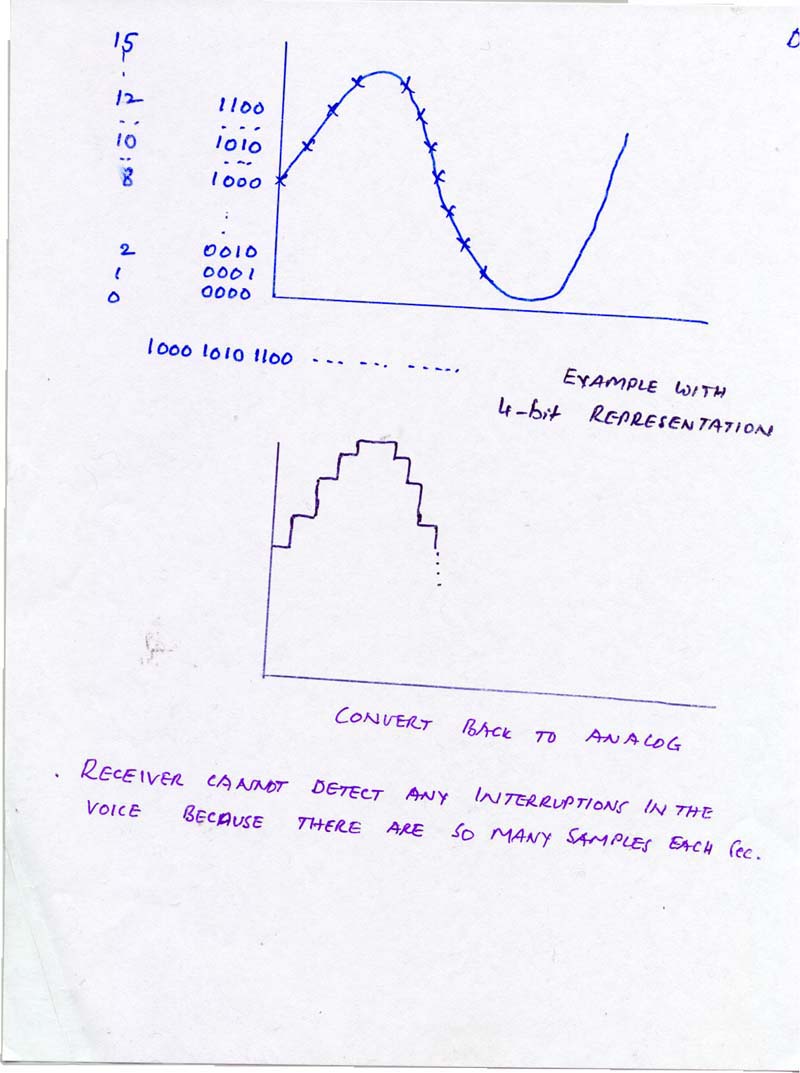 15
12 1100
10 1010
8 1000
2 0010
1 0001
0 0000
1000 1010 1100 --- --- -----
EXAMPLE WITH
4-bit REPRESENTATION
CONVERT BACK TO ANALOG
. RECEIVER CANNOT DETECT ANY INTERRUPTIONS IN THE
VOICE BECAUSE THERE ARE SO MANY SAMPLES EACH sec.